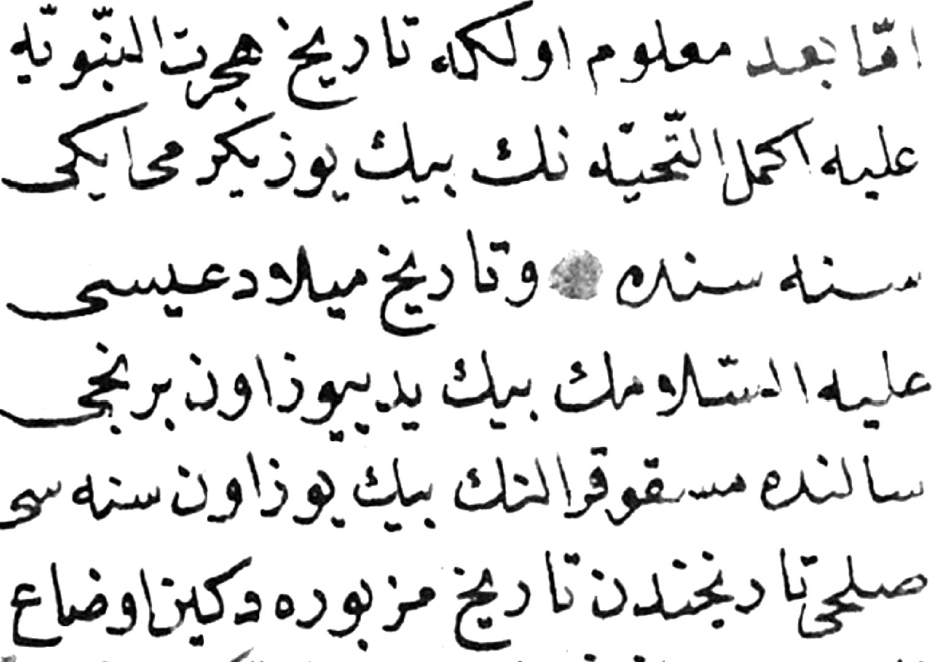 امّا بعد معلوم اولكه تاريخ هجرت النبّويّه
عليه اكمل التّحيّه نك بيك يوز يكرمى ايكى
سنه سنده وتاريخ ميلاد عيسى
عليه السّلامك بيك يدييوز اون برنجى
سالنده مسقو قرالنك بيك يوز اون سنه سى
صلحى تاريخندن تاريخ مزبوره دكين اوضاع